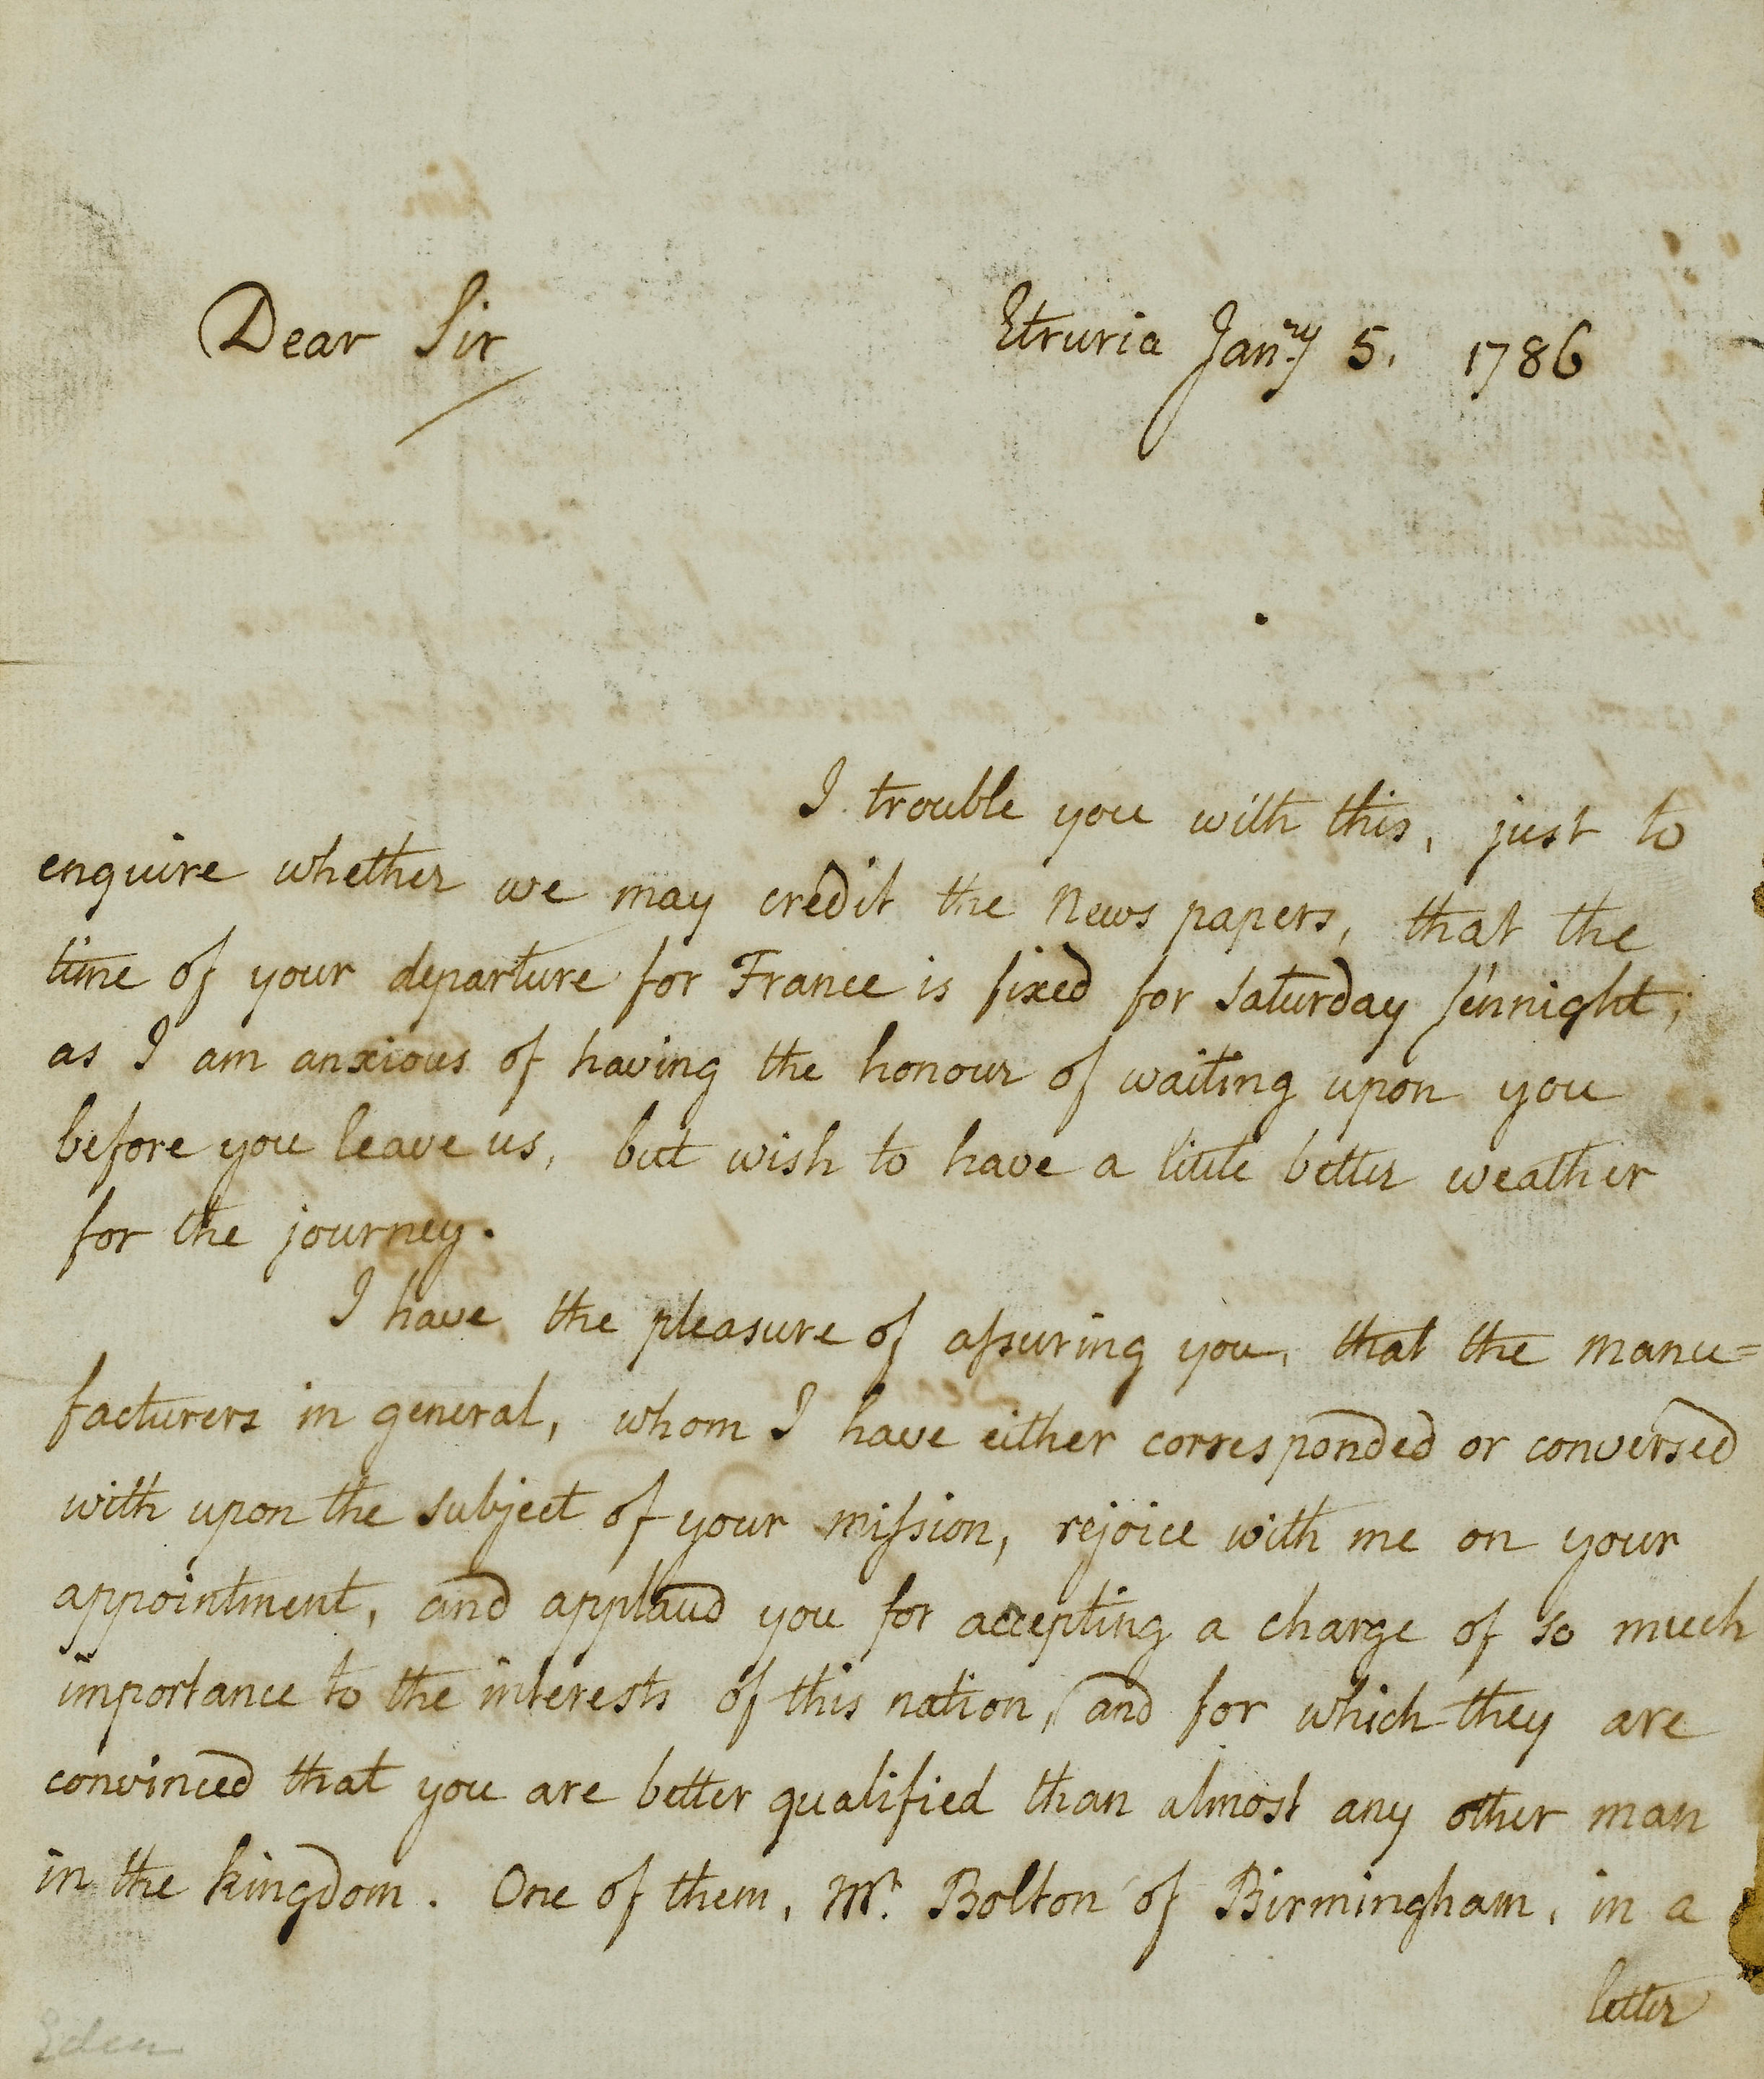 Dear Sir
Etruria Janry 5. 1786
I trouble you with this, just to
enquire whether we may credit the News papers, that the
time of your departure for France is fixed for saturday se'nnight;
as I am anxious of having the honour of waiting upon you
before you leave us, but wish to have a little better weather
for the journey.
I have the pleasure of aſsuring you, that the manu=
facturers in general, whom I have either corresponded or conversed
with upon the subject of your miſsion, rejoice with me on your
appointment, and applaud you for accepting a charge of so much
importance to the interests of this nation, and for which they are
convinced that you are better qualified than almost any other man
in the kingdom. One of them, Mr. Bolton of Birmingham, in a
letter
Eden